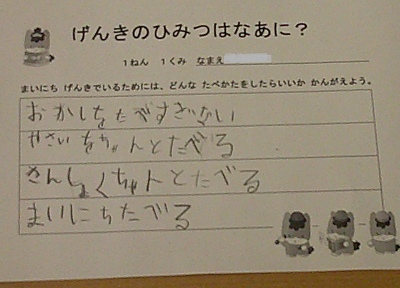 げんきのひみつはなあに？
1ねん 1くみ なまえ
まいにち げんきでいるためには、どんな たべかたをしたらいいか かんがえよう。
おかしをたべすぎない
やさいをちゃんとたべる
さんしょくちゃんとたべる
まいにちたべる